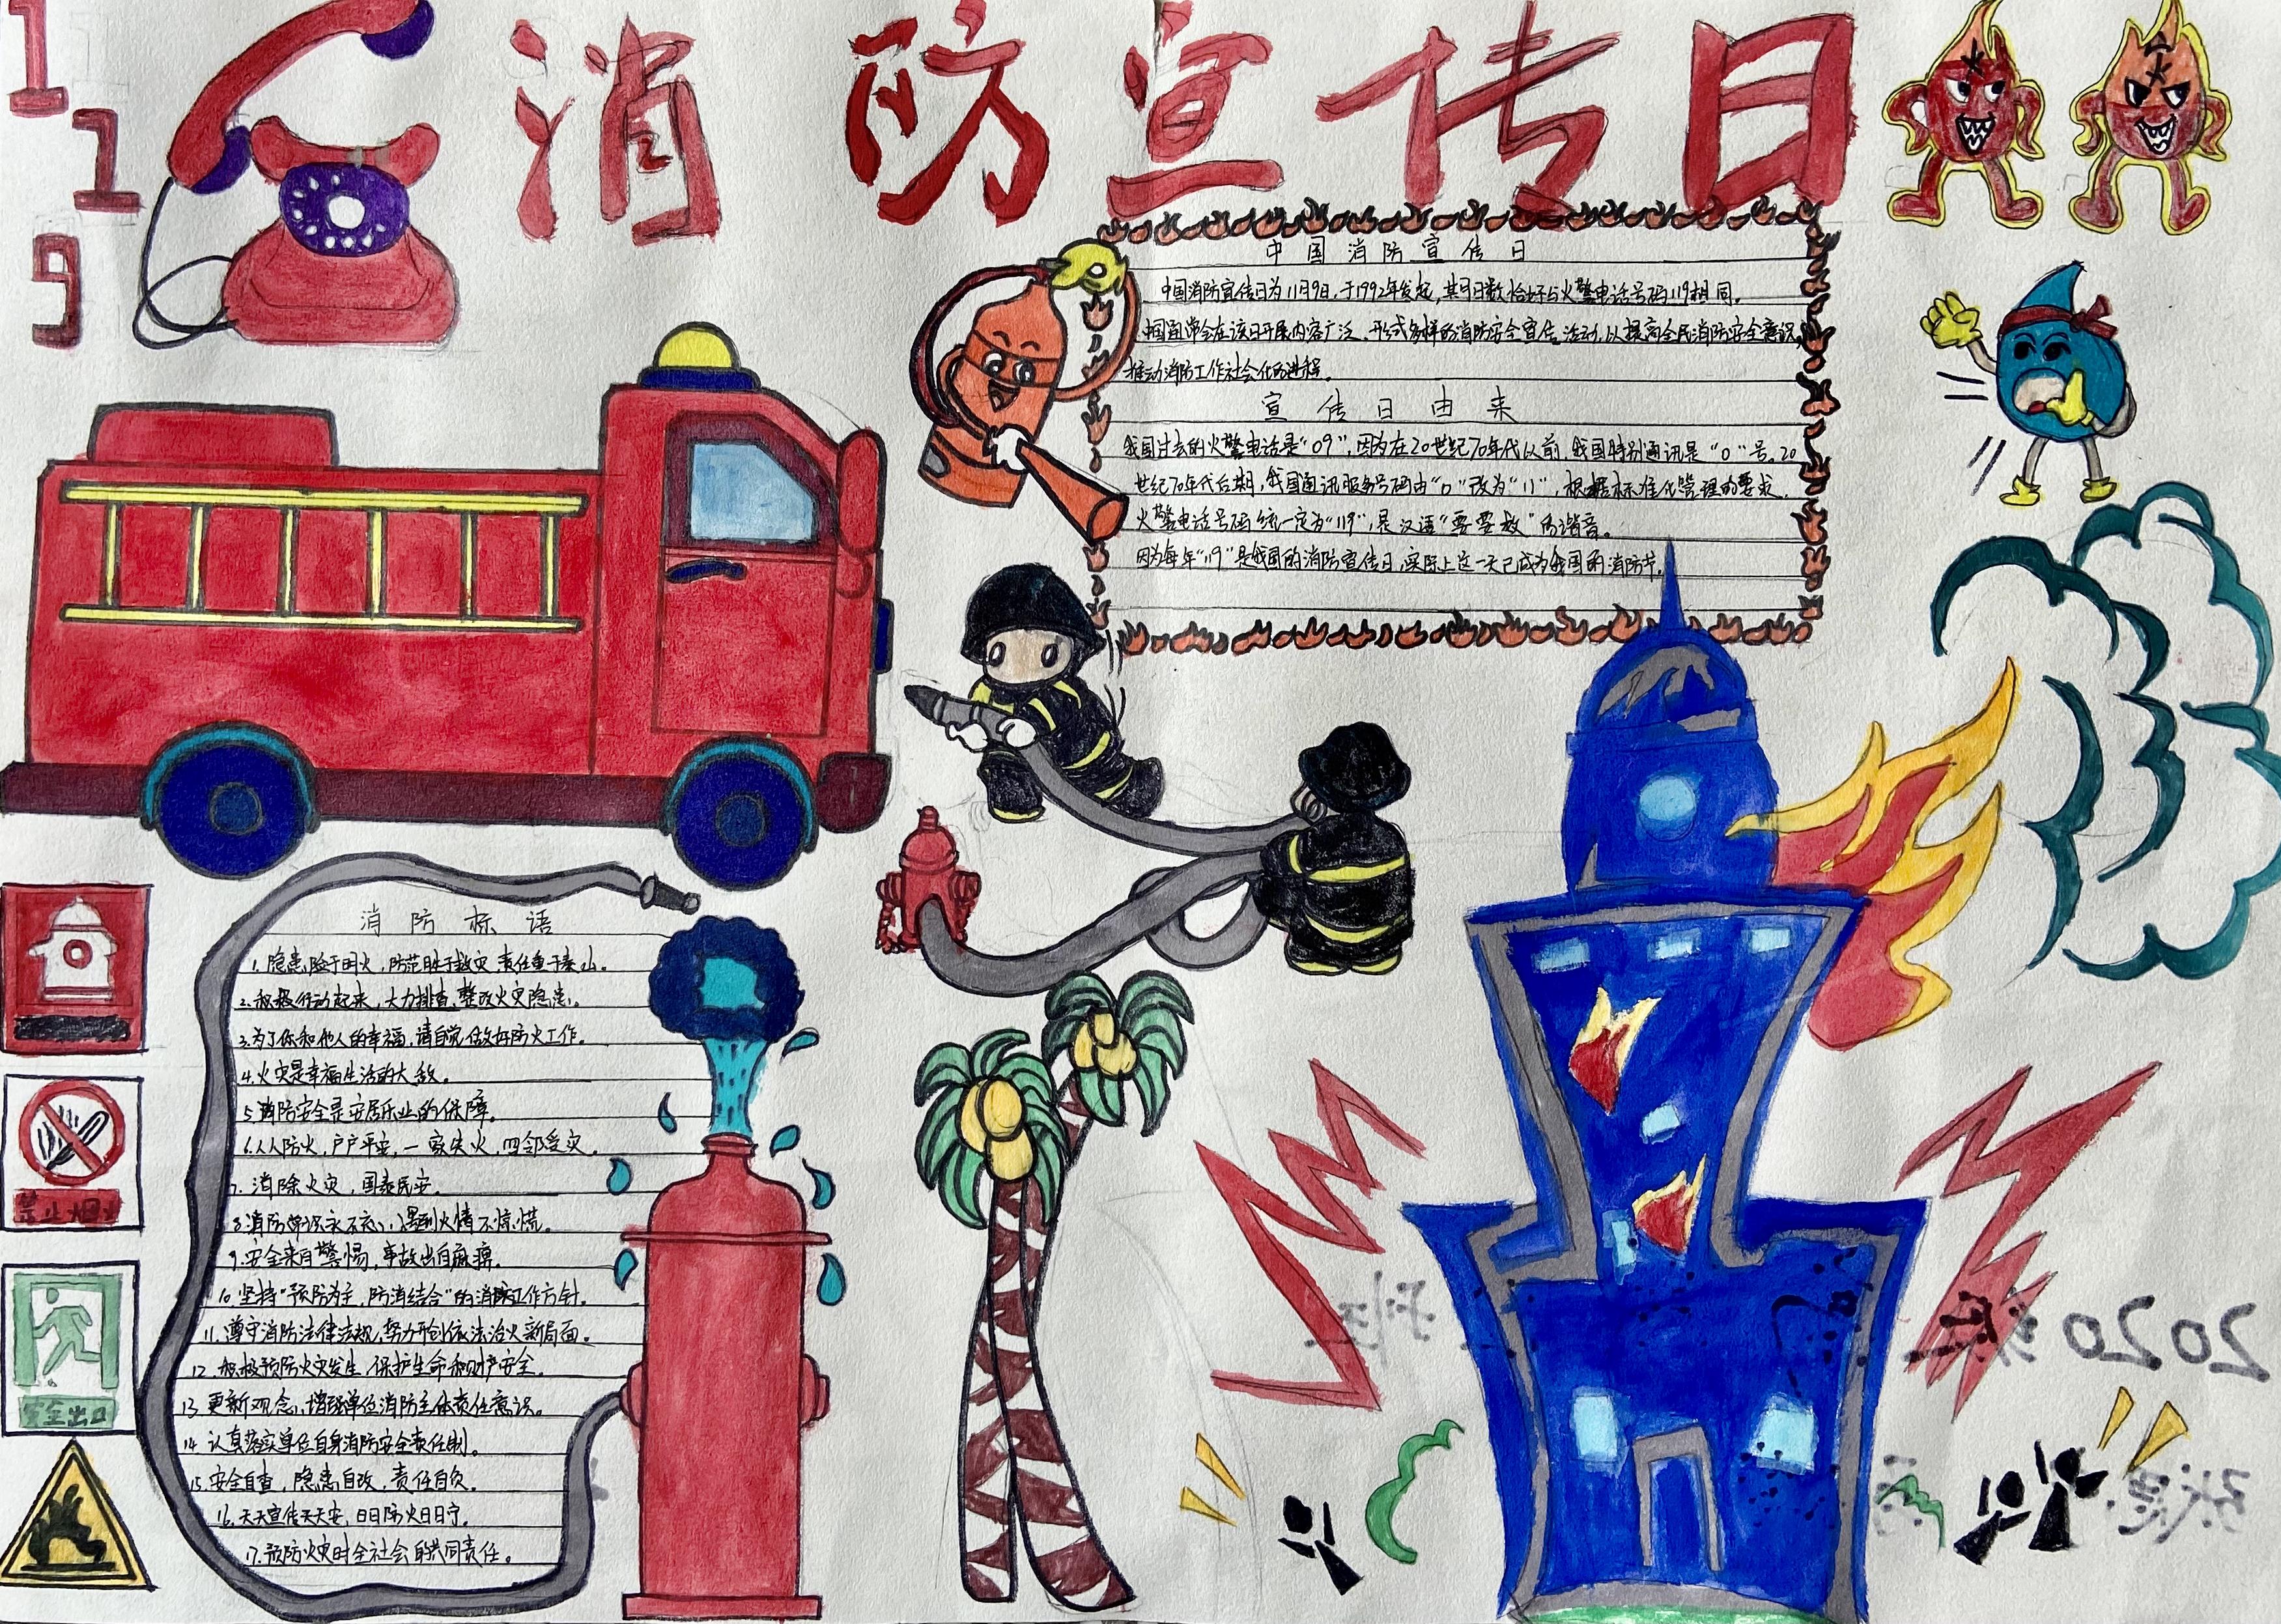 119
消防宣传日
中国消防宣传日
中国消防宣传日为11月9日,于1992年发起,其月日数恰好与火警电话号码119相同。
中国通常会在该日开展内容广泛、形式多样的消防安全宣传活动,以提高全民消防安全意识,
推动消防工作社会化的进程。
宣传日由来
我国过去的火警电话是“09”,因为在20世纪70年代以前,我国特别通讯是“0”号。20
世纪70年代后期,我国通讯服务号码由“0”改为“11”,根据标准化管理的要求,
火警电话号码统一定为“119”,是汉语“要要救”的谐音。
因为每年“119”是我国的消防宣传日,实际上这一天已成为我国的消防节。
消防标语
1.隐患险于明火,防范胜于救灾,责任重于泰山。
2.积极行动起来,大力排查、整改火灾隐患。
3.为了你和他人的幸福,请自觉做好防火工作。
4.火灾是幸福生活的大敌。
5.消防安全是安居乐业的保障。
6.人人防火,户户平安,一家失火,四邻受灾。
7.消除火灾,国泰民安。
8.消防常识永不忘,遇到火情不惊慌。
9.安全来自警惕,事故出自麻痹。
10.坚持“预防为主,防消结合”的消防工作方针。
11.遵守消防法律法规,努力开创依法治火新局面。
12.积极预防火灾发生,保护生命和财产安全。
13.更新观念,增强单位消防主体责任意识。
14.认真落实单位自身消防安全责任制。
15.安全自查,隐患自改,责任自负。
16.天天宣传天天安,日日防火日日宁。
17.预防火灾时全社会的共同责任。
禁止烟火
安全出口
2020级